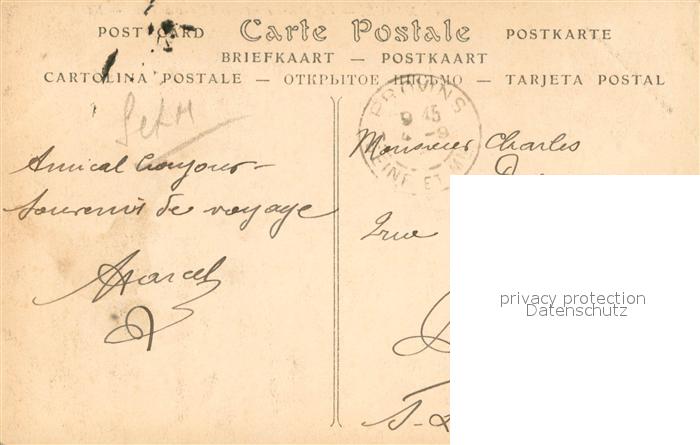 POST CARD Carte Postale POSTKARTE
BRIEFKAART — POSTKAART
CARTOLINA POSTALE — ОТКРЫТОЕ ПИСЬМО — TARJETA POSTAL
S et M
PROVINS
9 45
4 - 9
SEINE ET M
Amical bonjour -
Souvenir de voyage
Marcel
Monsieur Charles
rue
S-
privacy protection
Datenschutz